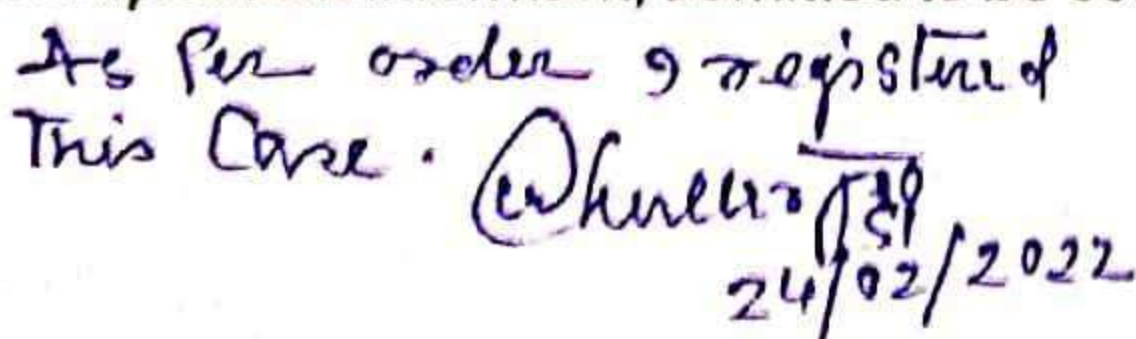 As Per order I registered
This Case.
24/02/2022